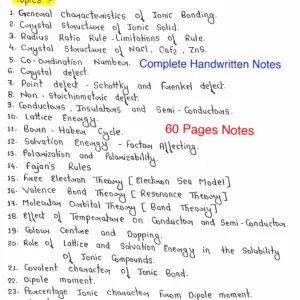 Topics :-
1. General characteristics of Ionic Bonding.
2. Crystal Structure of Ionic Solid.
3. Radius Ratio Rule - Limitations of Rule.
4. Crystal Structure of NaCl, CaF2, ZnS.
5. Co-ordination Number. Complete Handwritten Notes
6. Crystal defect.
7. Point defect - Schottky and Frenkel defect.
8. Non - Stoichiometric defect.
9. Conductors, Insulators and Semi-Conductors.
10. Lattice Energy.
11. Born - Haber Cycle. 60 Pages Notes
12. Solvation Energy. - Factor Affecting.
13. Polarization and Polarizability.
14. Fajan's Rules
15. Free Electron Theory [Electron Sea Model]
16. Valence Bond Theory [Resonance Theory]
17. Molecular Orbital Theory [Band Theory]
18. Effect of Temperature on Conductor and Semi-Conductor.
19. Colour Centre and Dopping.
20. Role of Lattice and Solvation Energy in the Solubility
of Ionic Compounds.
21. Covalent character of Ionic Bond.
22. Dipole moment.
23. Percentage Ionic character from Dipole moment.